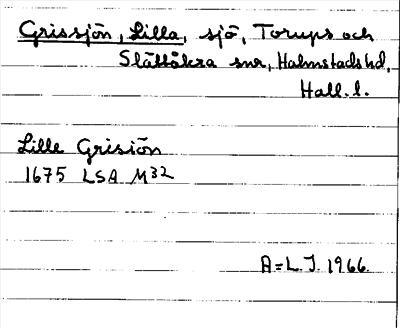 Grissjön, Lilla, sjö, Torups och
Slättåkra snr, Halmstads hd,
Hall. l.
Lille Grisiön
1675 LSA M32
A=L.J. 1966.